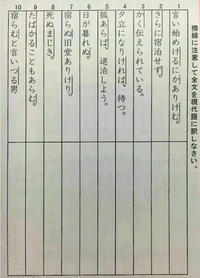 傍線に注意して全文を現代語に訳しなさい。
1 言い始めけるにかありけむ。
2 さらに宿泊せず。
3 かく伝えられている。
4 夕立になりければ、待つ。
5 狐あらば、退治しよう。
6 日が暮れぬ。
7 宿らぬ旧堂ありけり。
8 死ぬまじき。
9 たばかることもあらむ。
10 宿らむと言いつる男